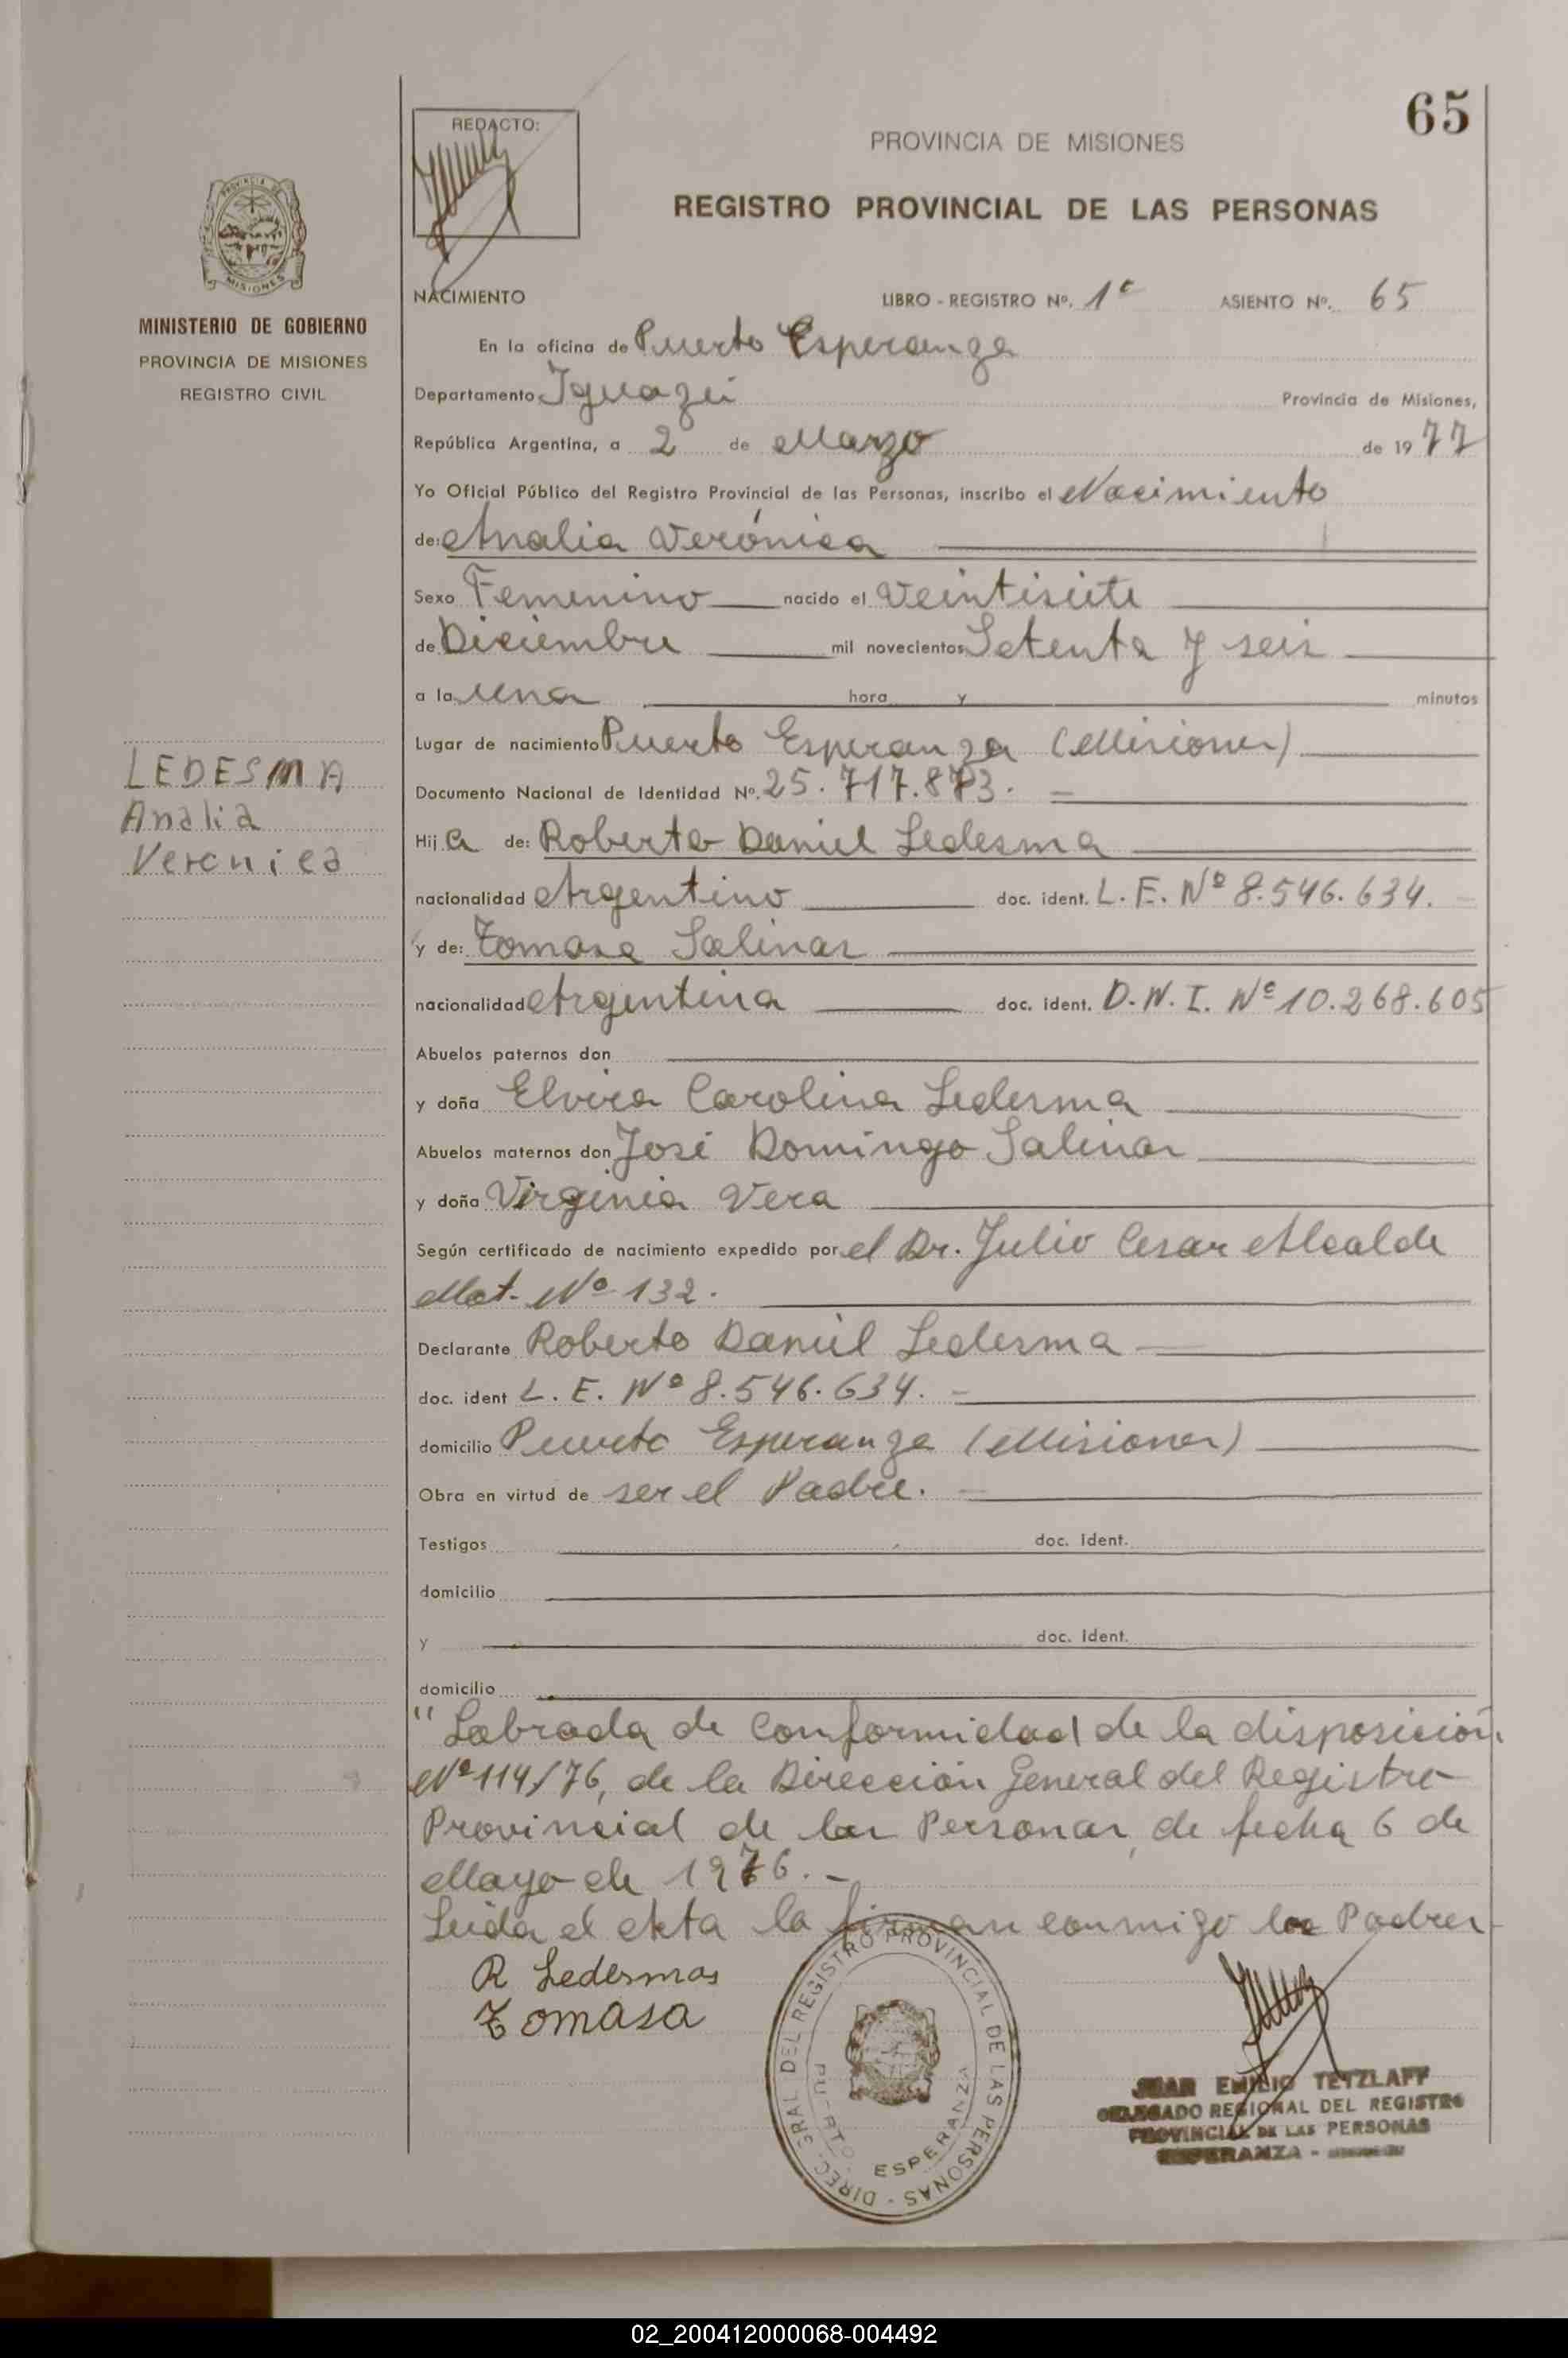 65
REDACTO:
PROVINCIA DE MISIONES
REGISTRO PROVINCIAL DE LAS PERSONAS
PROVINCIA DE
MISIONES
MINISTERIO DE GOBIERNO
PROVINCIA DE MISIONES
REGISTRO CIVIL
LEDESMA
Analia
Veronica
NACIMIENTO LIBRO - REGISTRO Nº. 1º ASIENTO Nº. 65
En la oficina de Puerto Esperanza
Departamento Iguazú Provincia de Misiones,
República Argentina, a 2 de Marzo de 1977
Yo Oficial Público del Registro Provincial de las Personas, inscribo el Nacimiento
de: Analia Verónica
Sexo Femenino nacido el Veintisiete
de Diciembre mil novecientos Setenta y seis
a la una hora y minutos
Lugar de nacimiento Puerto Esperanza (Misiones)
Documento Nacional de Identidad Nº. 25.717.873.
Hija de: Roberto Daniel Ledesma
nacionalidad Argentino doc. ident. L. E. Nº 8.546.634.
y de: Tomasa Salinas
nacionalidad Argentina doc. ident. D.N.I. Nº 10.268.605
Abuelos paternos don
y doña Elvira Carolina Ledesma
Abuelos maternos don José Domingo Salinas
y doña Virginia Vera
Según certificado de nacimiento expedido por el Dr. Julio Cesar Alcalde
Mat. Nº 132.
Declarante Roberto Daniel Ledesma
doc. ident L. E. Nº 8.546.634.
domicilio Puerto Esperanza (Misiones)
Obra en virtud de ser el Padre.
Testigos doc. ident.
domicilio
y doc. ident.
domicilio
"Labrada de Conformidad de la disposición
Nº 114/76, de la Dirección General del Registro
Provincial de las Personas, de fecha 6 de
Mayo de 1976.-
Leida el Acta la firman conmigo los Padres
R Ledesmas
Tomasa
DIREC. GRAL DEL REGISTRO PROVINCIAL DE LAS PERSONAS -
PUERTO ESPERANZA
JUAN EMILIO TETZLAFF
DELEGADO REGIONAL DEL REGISTRO
PROVINCIAL DE LAS PERSONAS
ESPERANZA -
02_200412000068-004492